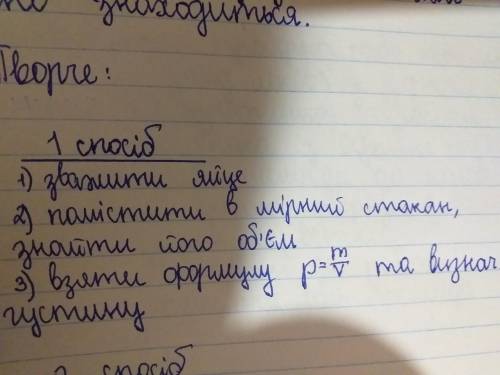 знаходиться.
Творче:
1 спосіб
1) зважити яйце
2) помістити в мірний стакан,
знайти його об'єм
3) взяти формулу p=m/V та визнач
густину
спосіб